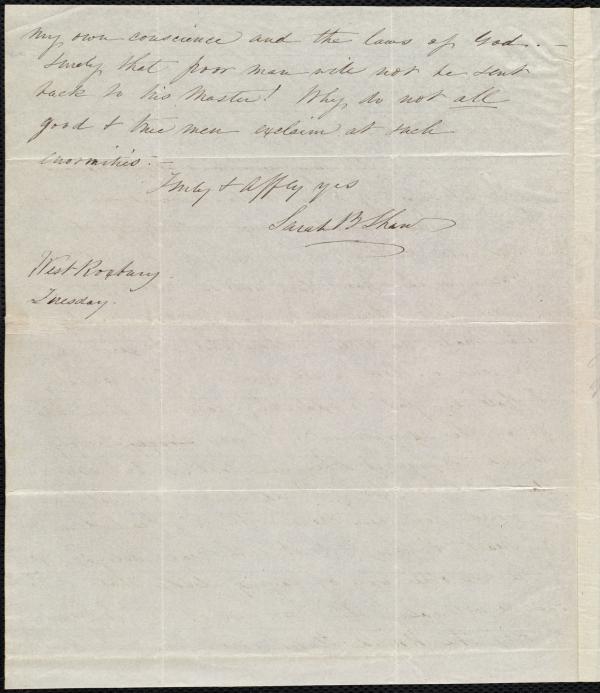 my own conscience and the laws of God. –
Surely that poor man will not be sent
back to his Master! Why do not all
good & true men exclaim at such
enormities. –
Truly & affly yrs
Sarah B Shaw
West Roxbury.
Tuesday.